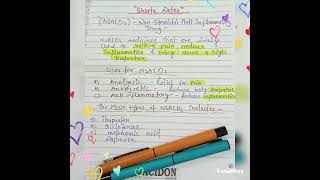 "Shorts Notes"
(NSAIDs) - Non Steroidal Anti-Inflammatory
Drug.
NSAIDs medicines that are widely
Used to relieve pain, reduce
Inflammation & bring down a high
Temperature.
Uses for NSAIDs
a) Analgesic - Relief for Pain
b) Antipyretic - Reduce body
c) Anti inflammatory - Reduce Inflammation
The Main types of NSAIDs Includes
Ibuprofen
Diclofenac
mefenamic acid
CIDON